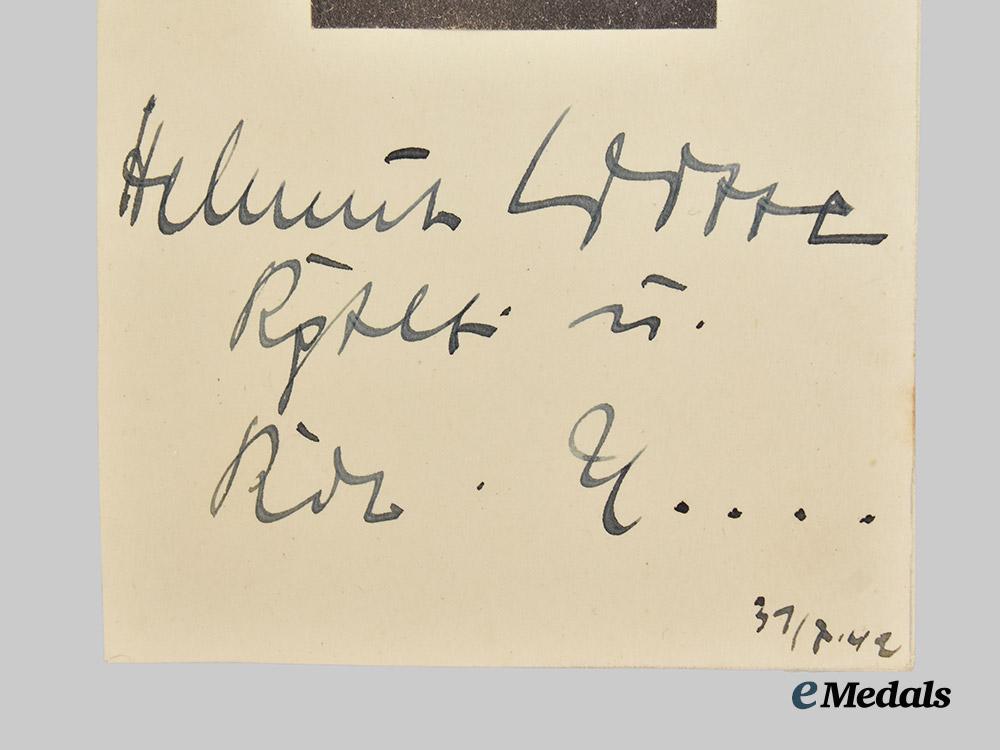 Helmut Witte
Kptlt. u.
Kdt. U....
31/7.42
eMedals